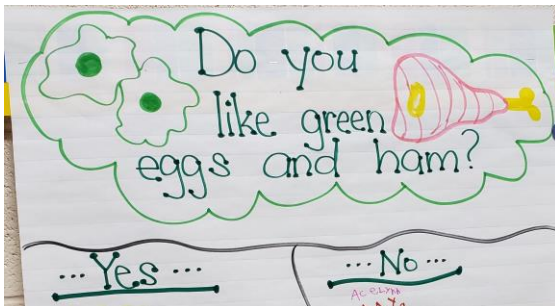 Do you
like green
eggs and ham?
... Yes ...
... No ...
Acelynn